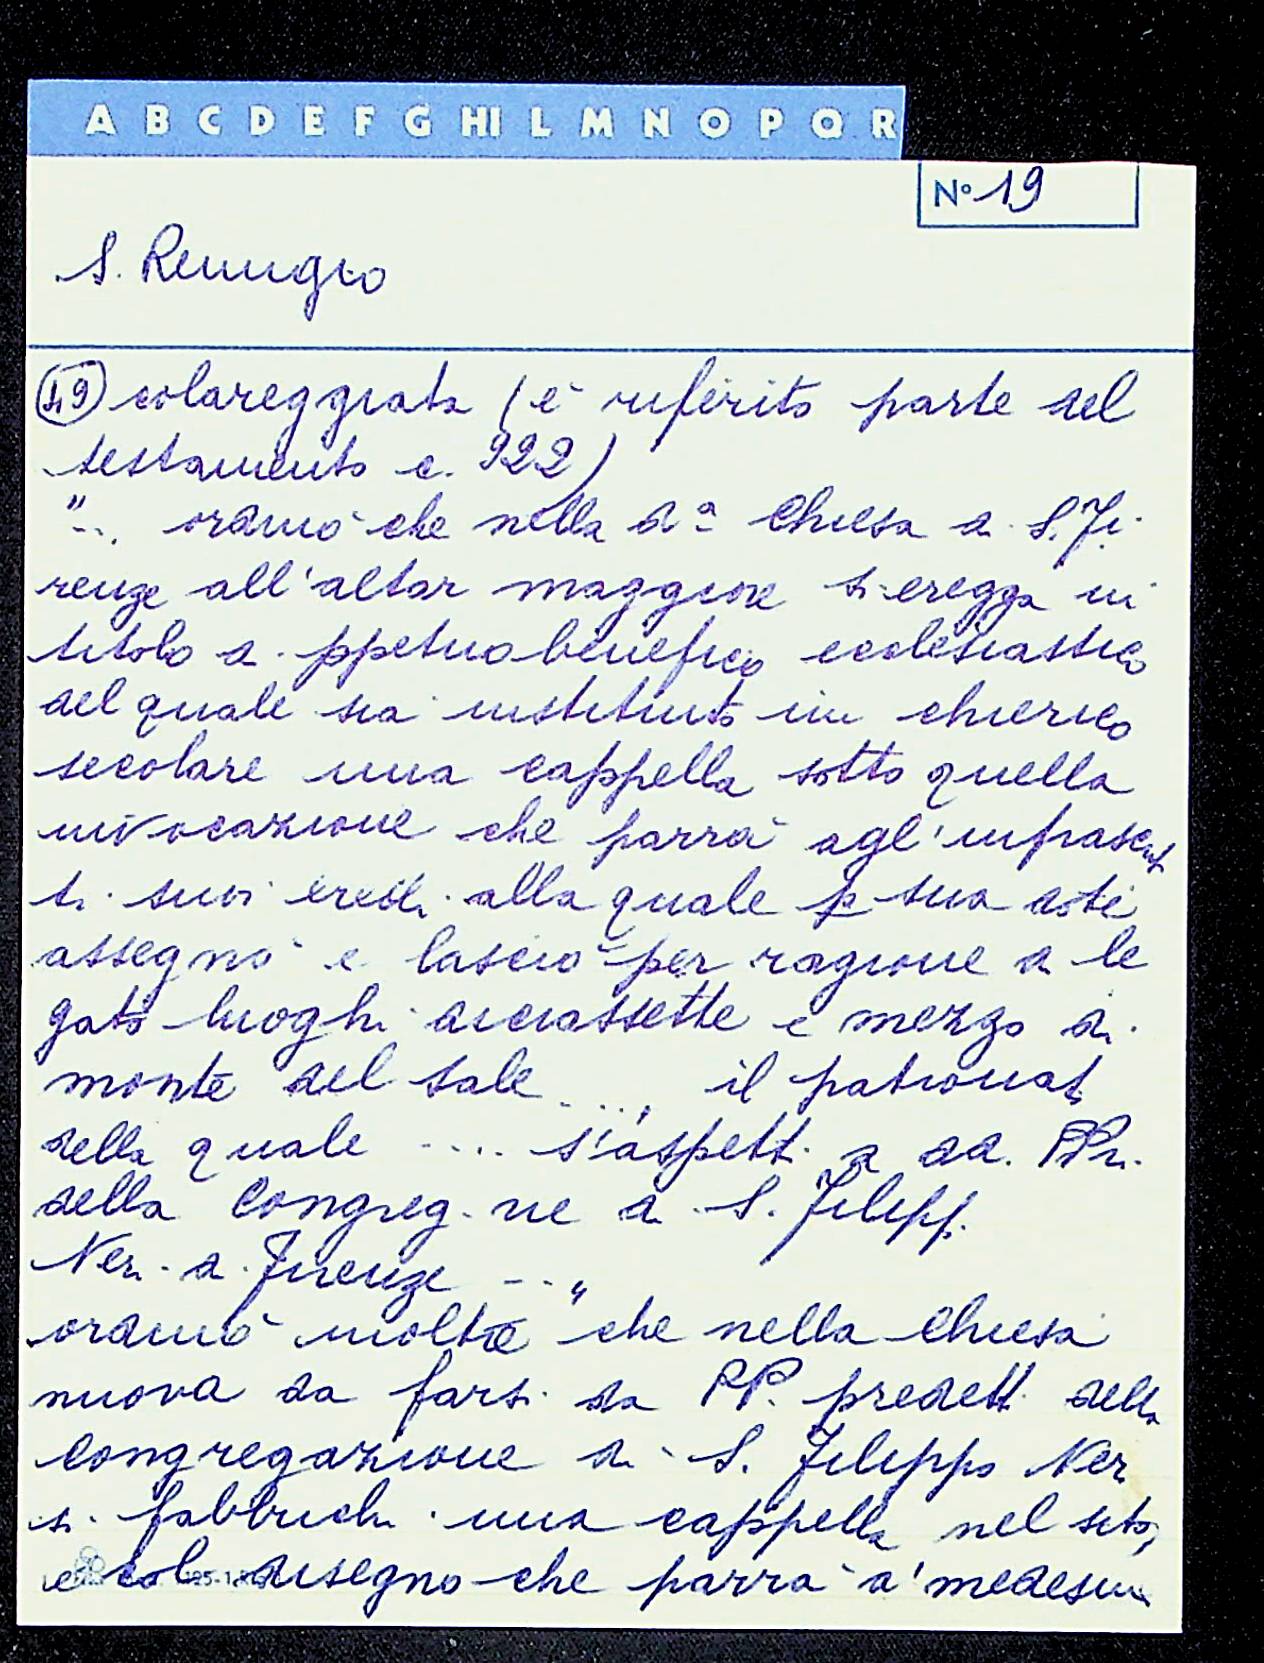 A B C D E F G HI L M N O P Q R
N° 19
S. Remigio
19 colareggiata (è riferito parte del
testamento c. 922)
"... ordinò che nella da Chiesa di S. Fi
renze all'altar maggiore si eregga in
titolo di ppetuo beneficio ecclesiastico
del quale sia instituito un chierico
secolare una cappella sotto quella
invocazione che parrà agl'infrascrit
ti suoi eredi alla quale p sua dote
assegnò e lasciò per ragione di le
gato luoghi diciassette e mezzo di
monte del sale .... il patronat
della quale .... s'aspetti a dd. PPri.
della Congreg.ne di S. Filipp.
Neri di Firenze ..."
ordinò inoltre "che nella Chiesa
nuova da farsi da PP. predetti della
congregazione di S. Filippo Neri
si fabbrichi una cappella nel sito,
e col disegno che parrà a' medesimi